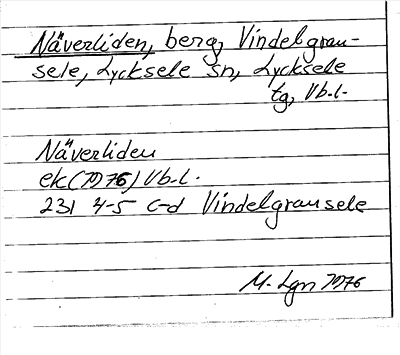 Näverliden, berg, Vindelgran-
sele, Lycksele sn, Lycksele
tg, Vb.l.
Näverliden
ek (1976) Vb.l.
23I 4-5 c-d Vindelgransele
M. Lgn 1976